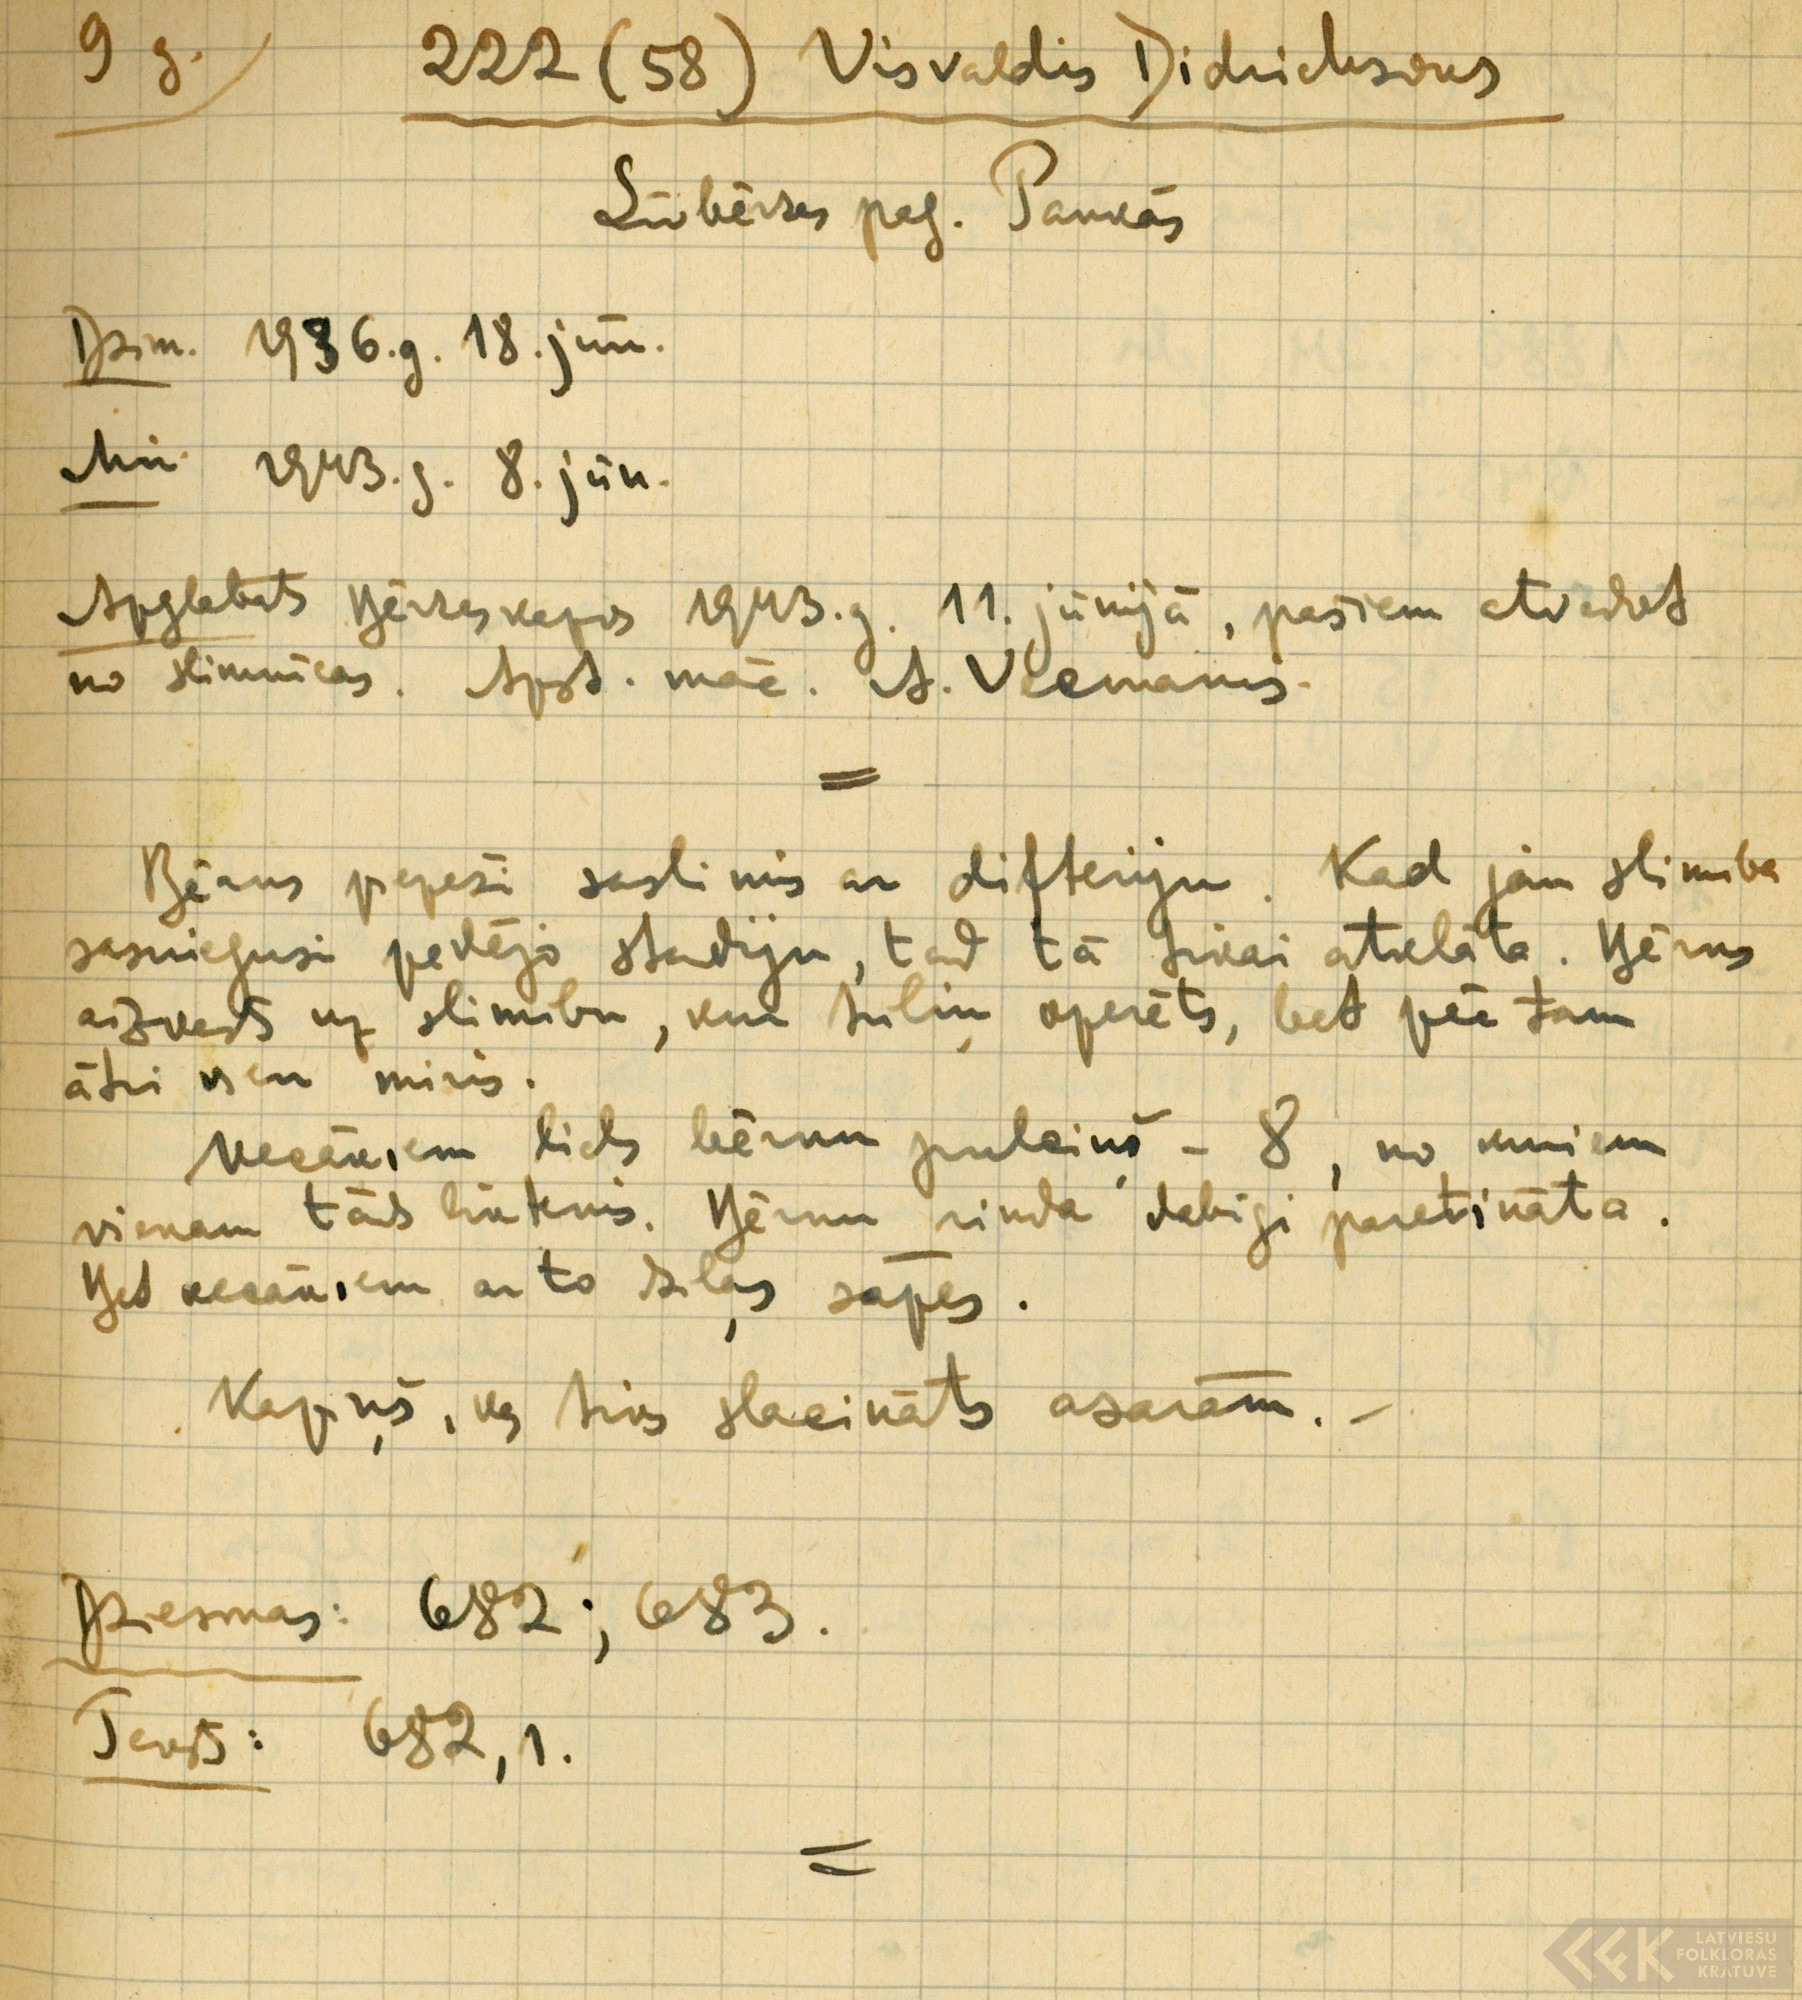 9 g. 222 (58) Visvaldis Didrichsons
Līvbērzes pag. Pankās
Dzim. 1936.g. 18. jūn.
Mir. 1943.g. 8. jūn.
Apglabāts Bērzes kapos 1943.g. 11. jūnijā, pašiem atvedot
no slimnīcas. Apst. māc. A. Vecmanis.
=
Bērns pepeši saslimis ar difteriju. Kad jau slimība
sasniegusi pēdējo stadiju, tad tā tikai atklāta. Bērns
aizvests uz slimību, kur tuliņ operēts, bet pēc tam
ātri vien miris.
Vecākiem liels bērnu pulciņš – 8, no kuriem
vienam tāds liktenis. Bērnu rinda dabīgi paretināta.
Bet vecākiem ar to dziļas sāpes.
Kapiņš, kas tiks slacināts asarām. –
Dziesmas: 682; 683.
Teksts: 682, 1.
=
LATVIEŠU
FOLKLORAS
KRĀTUVE